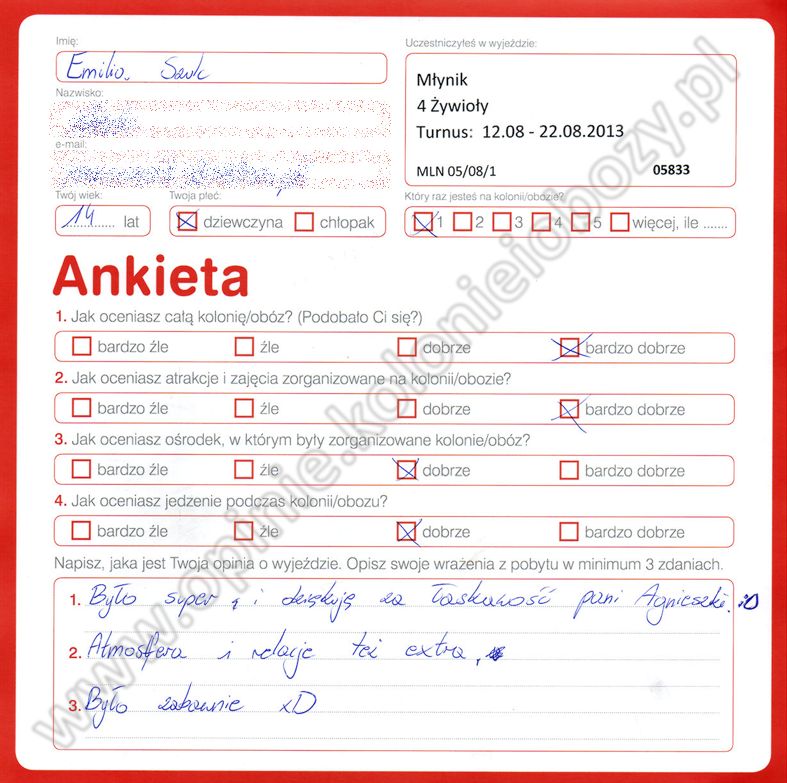 Imię:
Emilia Sauk
Nazwisko:
e-mail:
Twój wiek:
14 lat
Twoja płeć:
dziewczyna chłopak
Uczestniczyłeś w wyjeździe:
Młynik
4 Żywioły
Turnus: 12.08 - 22.08.2013
MLN 05/08/1 05833
Który raz jesteś na kolonii/obozie?
1 2 3 4 5 więcej, ile .......
Ankieta
1. Jak oceniasz całą kolonię/obóz? (Podobało Ci się?)
bardzo źle źle dobrze bardzo dobrze
2. Jak oceniasz atrakcje i zajęcia zorganizowane na kolonii/obozie?
bardzo źle źle dobrze bardzo dobrze
3. Jak oceniasz ośrodek, w którym były zorganizowane kolonie/obóz?
bardzo źle źle dobrze bardzo dobrze
4. Jak oceniasz jedzenie podczas kolonii/obozu?
bardzo źle źle dobrze bardzo dobrze
Napisz, jaka jest Twoja opinia o wyjeździe. Opisz swoje wrażenia z pobytu w minimum 3 zdaniach.
1. Było super, i dziękuję za łaskawość pani Agnieszki. :D
2. Atmosfera i relacje też extra.
3. Było zabawnie xD
www.opinie.kolonieiobozy.pl